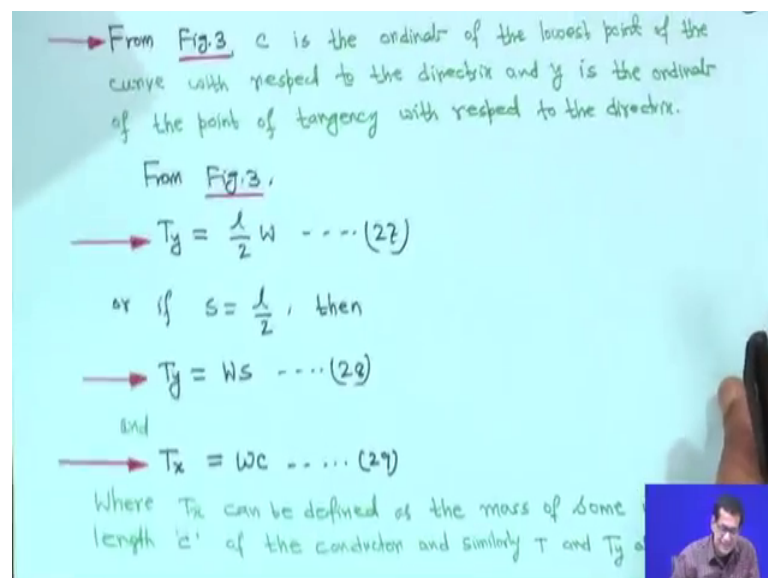 From Fig.3, c is the ordinate of the lowest point of the
curve with respect to the directrix and y is the ordinate
of the point of tangency with respect to the directrix.
From Fig.3,
Ty = l/2 W ---- (27)
or if s = l/2, then
Ty = Ws ---- (28)
and
Tx = Wc ..... (29)
Where Tx can be defined as the mass of some
length 'c' of the conductor and similarly T and Ty